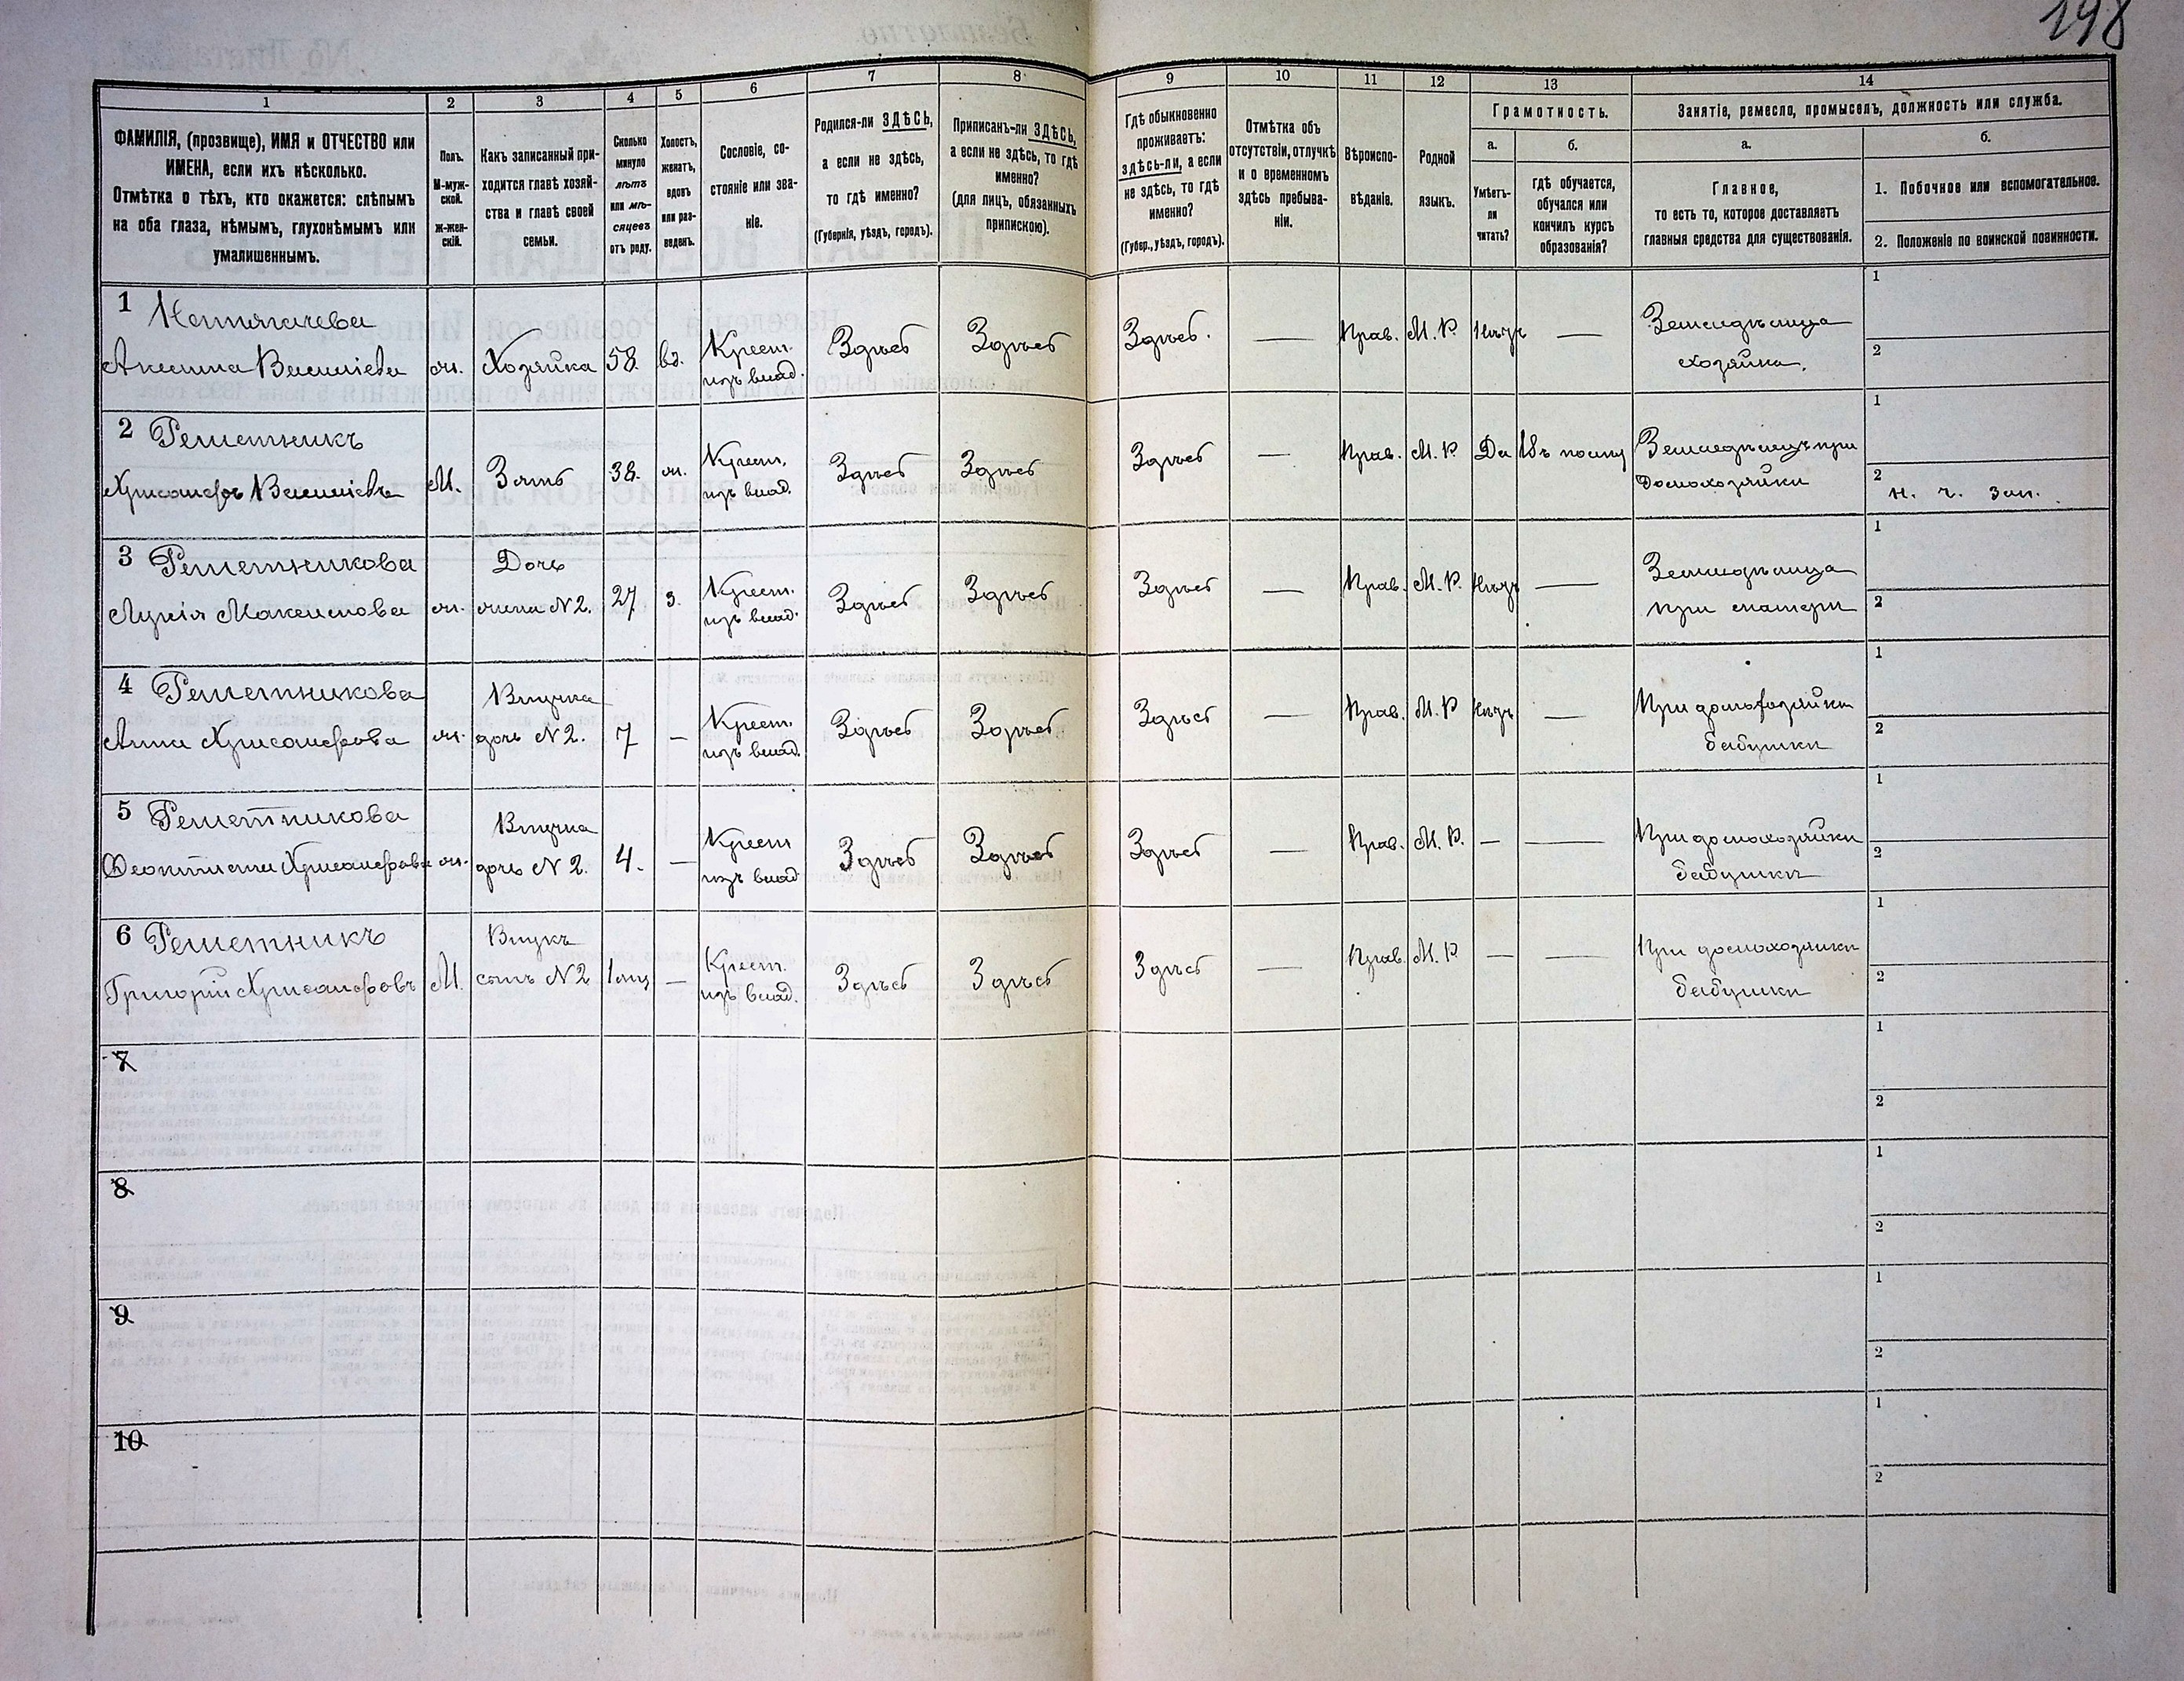 198
1
2
3
4
5
6
7
8
9
10
11
12
13
14
ФАМИЛІЯ, (прозвище), ИМЯ и ОТЧЕСТВО или
ИМЕНА, если ихъ нѣсколько.
Отмѣтка о тѣхъ, кто окажется: слѣпымъ
на оба глаза, нѣмымъ, глухонѣмымъ или
умалишеннымъ.
Полъ.
М-муж-
ской.
Ж-жен-
скій.
Какъ записанный при-
ходится главѣ хозяй-
ства и главѣ своей
семьи.
Сколько
минуло
лѣтъ
или мѣ-
сяцевъ
отъ роду.
Холостъ,
женатъ,
вдовъ
или раз-
веденъ.
Сословіе, со-
стояніе или зва-
ніе.
Родился-ли ЗДѢСЬ,
а если не здѣсь,
то гдѣ именно?
(Губернія, уѣздъ, городъ).
Приписанъ-ли ЗДѢСЬ,
а если не здѣсь, то гдѣ
именно?
(для лицъ, обязанныхъ
припискою).
Гдѣ обыкновенно
проживаетъ:
здѣсь-ли, а если
не здѣсь, то гдѣ
именно?
(Губер., уѣздъ, городъ).
Отмѣтка объ
отсутствіи, отлучкѣ
и о временномъ
здѣсь пребыва-
ніи.
Вѣроиспо-
вѣданіе.
Родной
языкъ.
Грамотность.
а.
Умѣетъ-
ли
читать?
б.
гдѣ обучается,
обучался или
кончилъ курсъ
образованія?
Занятіе, ремесло, промыселъ, должность или служба.
а.
Главное,
то есть то, которое доставляетъ
главныя средства для существованія.
б.
1. Побочное или вспомогательное.
2. Положеніе по воинской повинности.
1
Василіева
ж. Хозяйка 58. вд. Крест. изъ влад. Здѣсь Здѣсь Здѣсь. — Прав. М. Р. Нѣтъ — Земледѣлица
хозяйка.
1
2
2 Решетникъ
Хрисанфъ Василіевъ М. Зять 38. ж. Крест. изъ влад. Здѣсь Здѣсь Здѣсь — Прав. М. Р. Да Земледѣлецъ при
домохозяйки
1
2 н. ч. зап.
3 Решетникова
Лукія Максимова ж. Дочь
жена N2. 27 з. Крест. изъ влад. Здѣсь Здѣсь Здѣсь — Прав. М. Р. Нѣтъ — Земледѣлица
при матери
1
2
4 Решетникова
Анна Хрисанфова ж. Внучка
дочь N2. 7 — Крест. изъ влад. Здѣсь Здѣсь Здѣсь — Прав. М. Р. Нѣтъ — При домохозяйки
бабушки
1
2
5 Решетникова
Феоктиста Хрисанфова ж. Внучка
дочь N 2. 4. — Крест изъ влад Здѣсь Здѣсь Здѣсь — Прав. М. Р. — — При домохозяйки
бабушки
1
2
6 Решетникъ
Григорій Хрисанфовъ М. Внукъ
сынъ N2 — Крест. изъ влад. Здѣсь Здѣсь Здѣсь — Прав. М. Р. — — При домохозяйки
бабушки
1
2
7
1
2
8
1
2
9
1
2
10
1
2